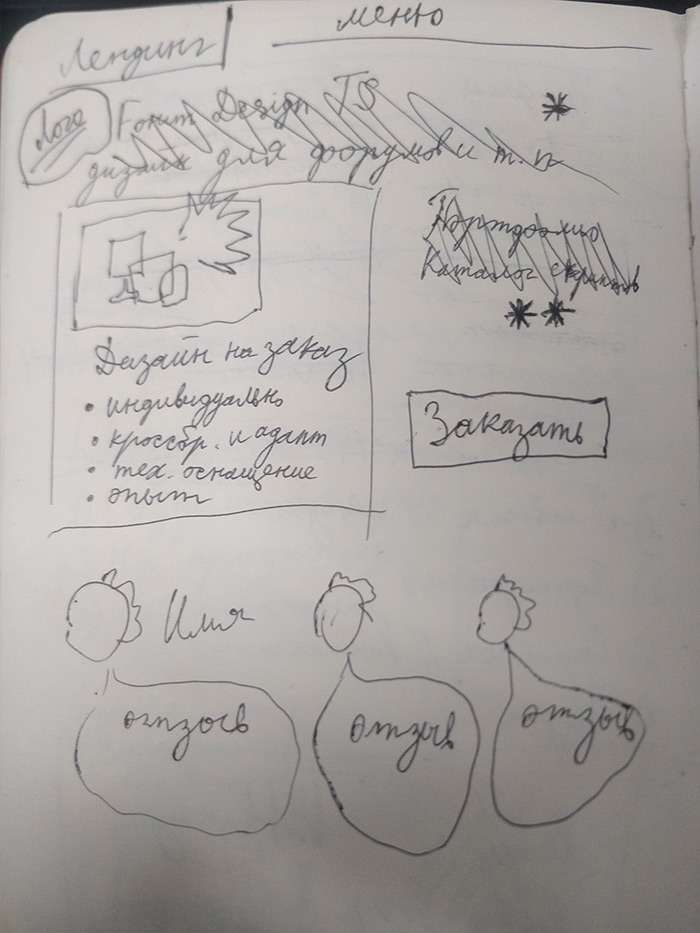 Лендинг
меню
Лого
Forum Design TS
дизайн для форумов и т.п
*
Портфолио
Каталог скриптов
**
Дизайн на заказ
• индивидуально
• кроссбр. и адапт
• тех. оснащение
• опыт
Заказать
Имя
отзыв
отзыв
отзыв